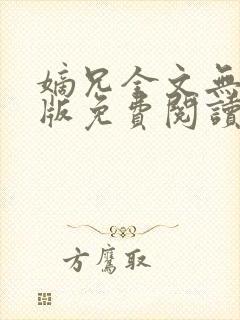 嫡兄全文無
版免費閱讀
方鷹取